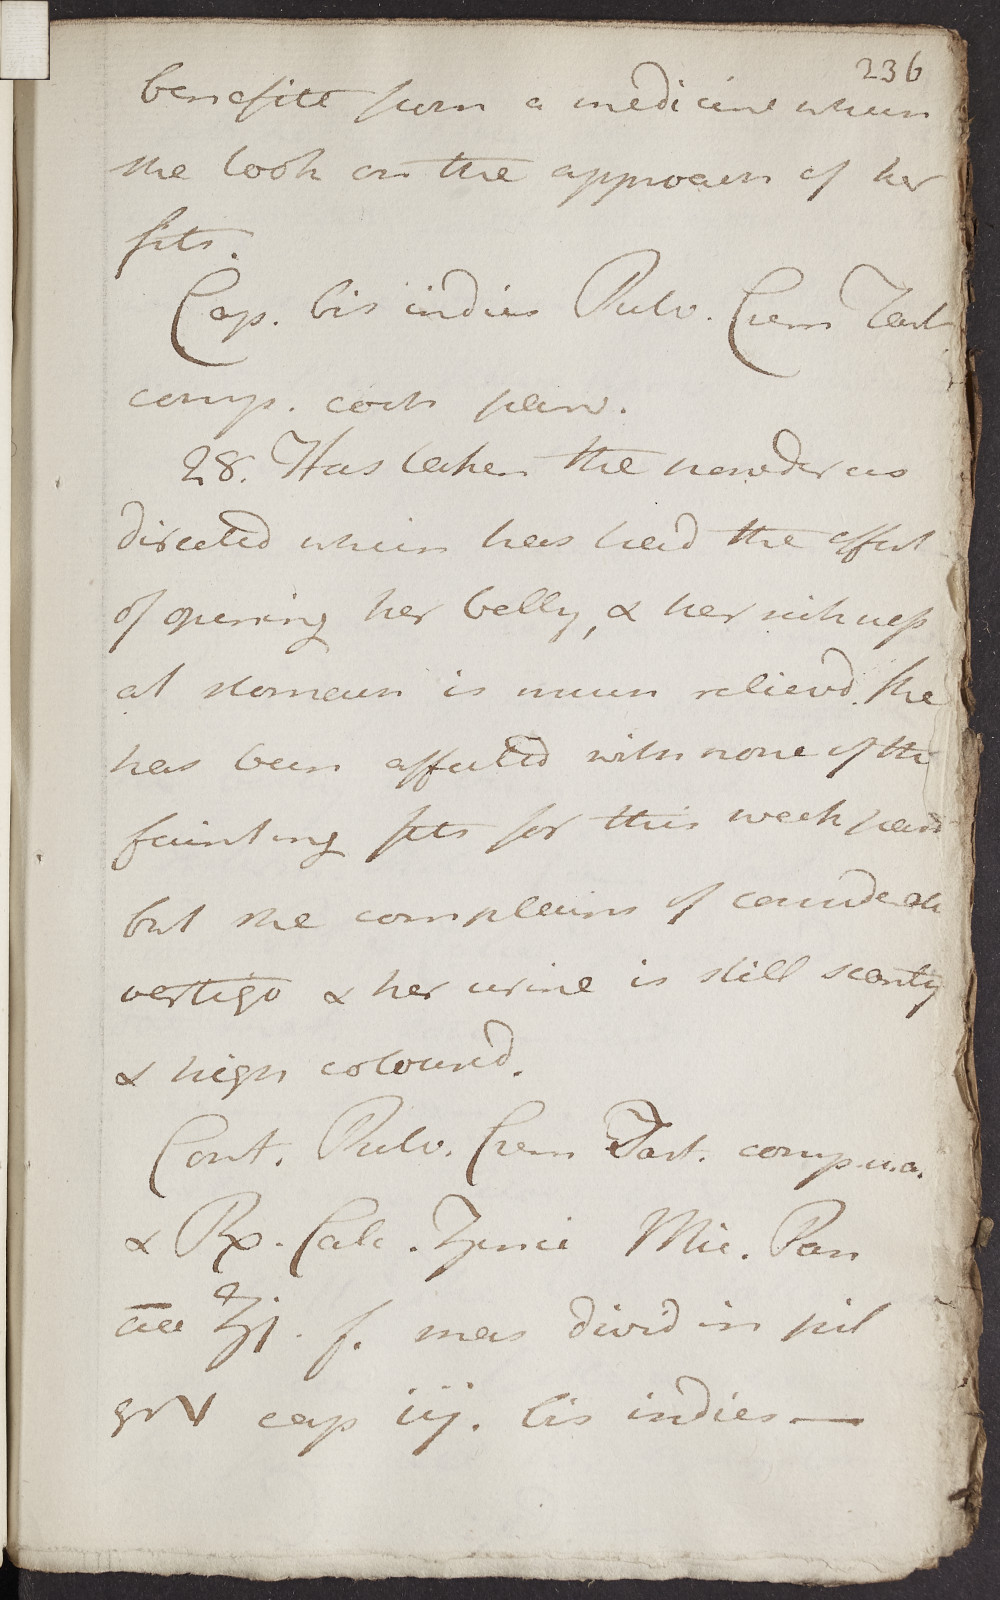 236
benefitt from a medicine which
she took on the approach of her
fits.
Cap. bis indies Pulv. Crem Tart
comp. coch parv.
28. Has taken the powder as
directed which has had the effect
of opening her belly, & her sickness
at stomach is much relievd. She
has been affected with none of the
fainting fits for this week past
but she complains of considerable
vertigo & her urine is still scanty
& high coloured.
Cont. Pulv. Crem Tart. comp. u.a.
& Rx. Calc. Zinci Mic. Pan
aa ʒj. f. mas divid in pil
gr V cap iij. bis indies —